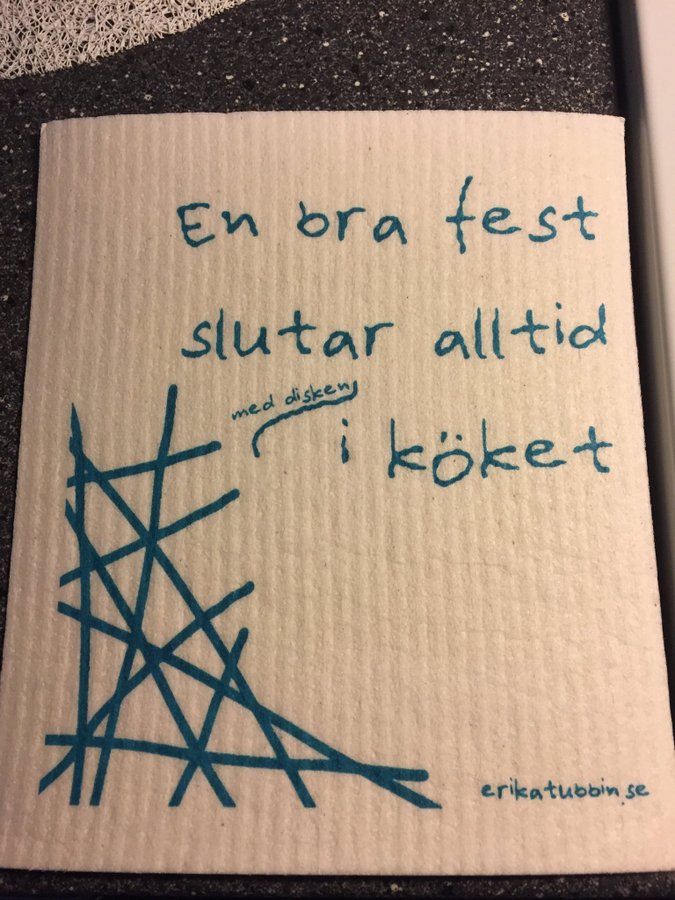 En bra fest
slutar alltid
med disken
i köket
erikatubbin.se